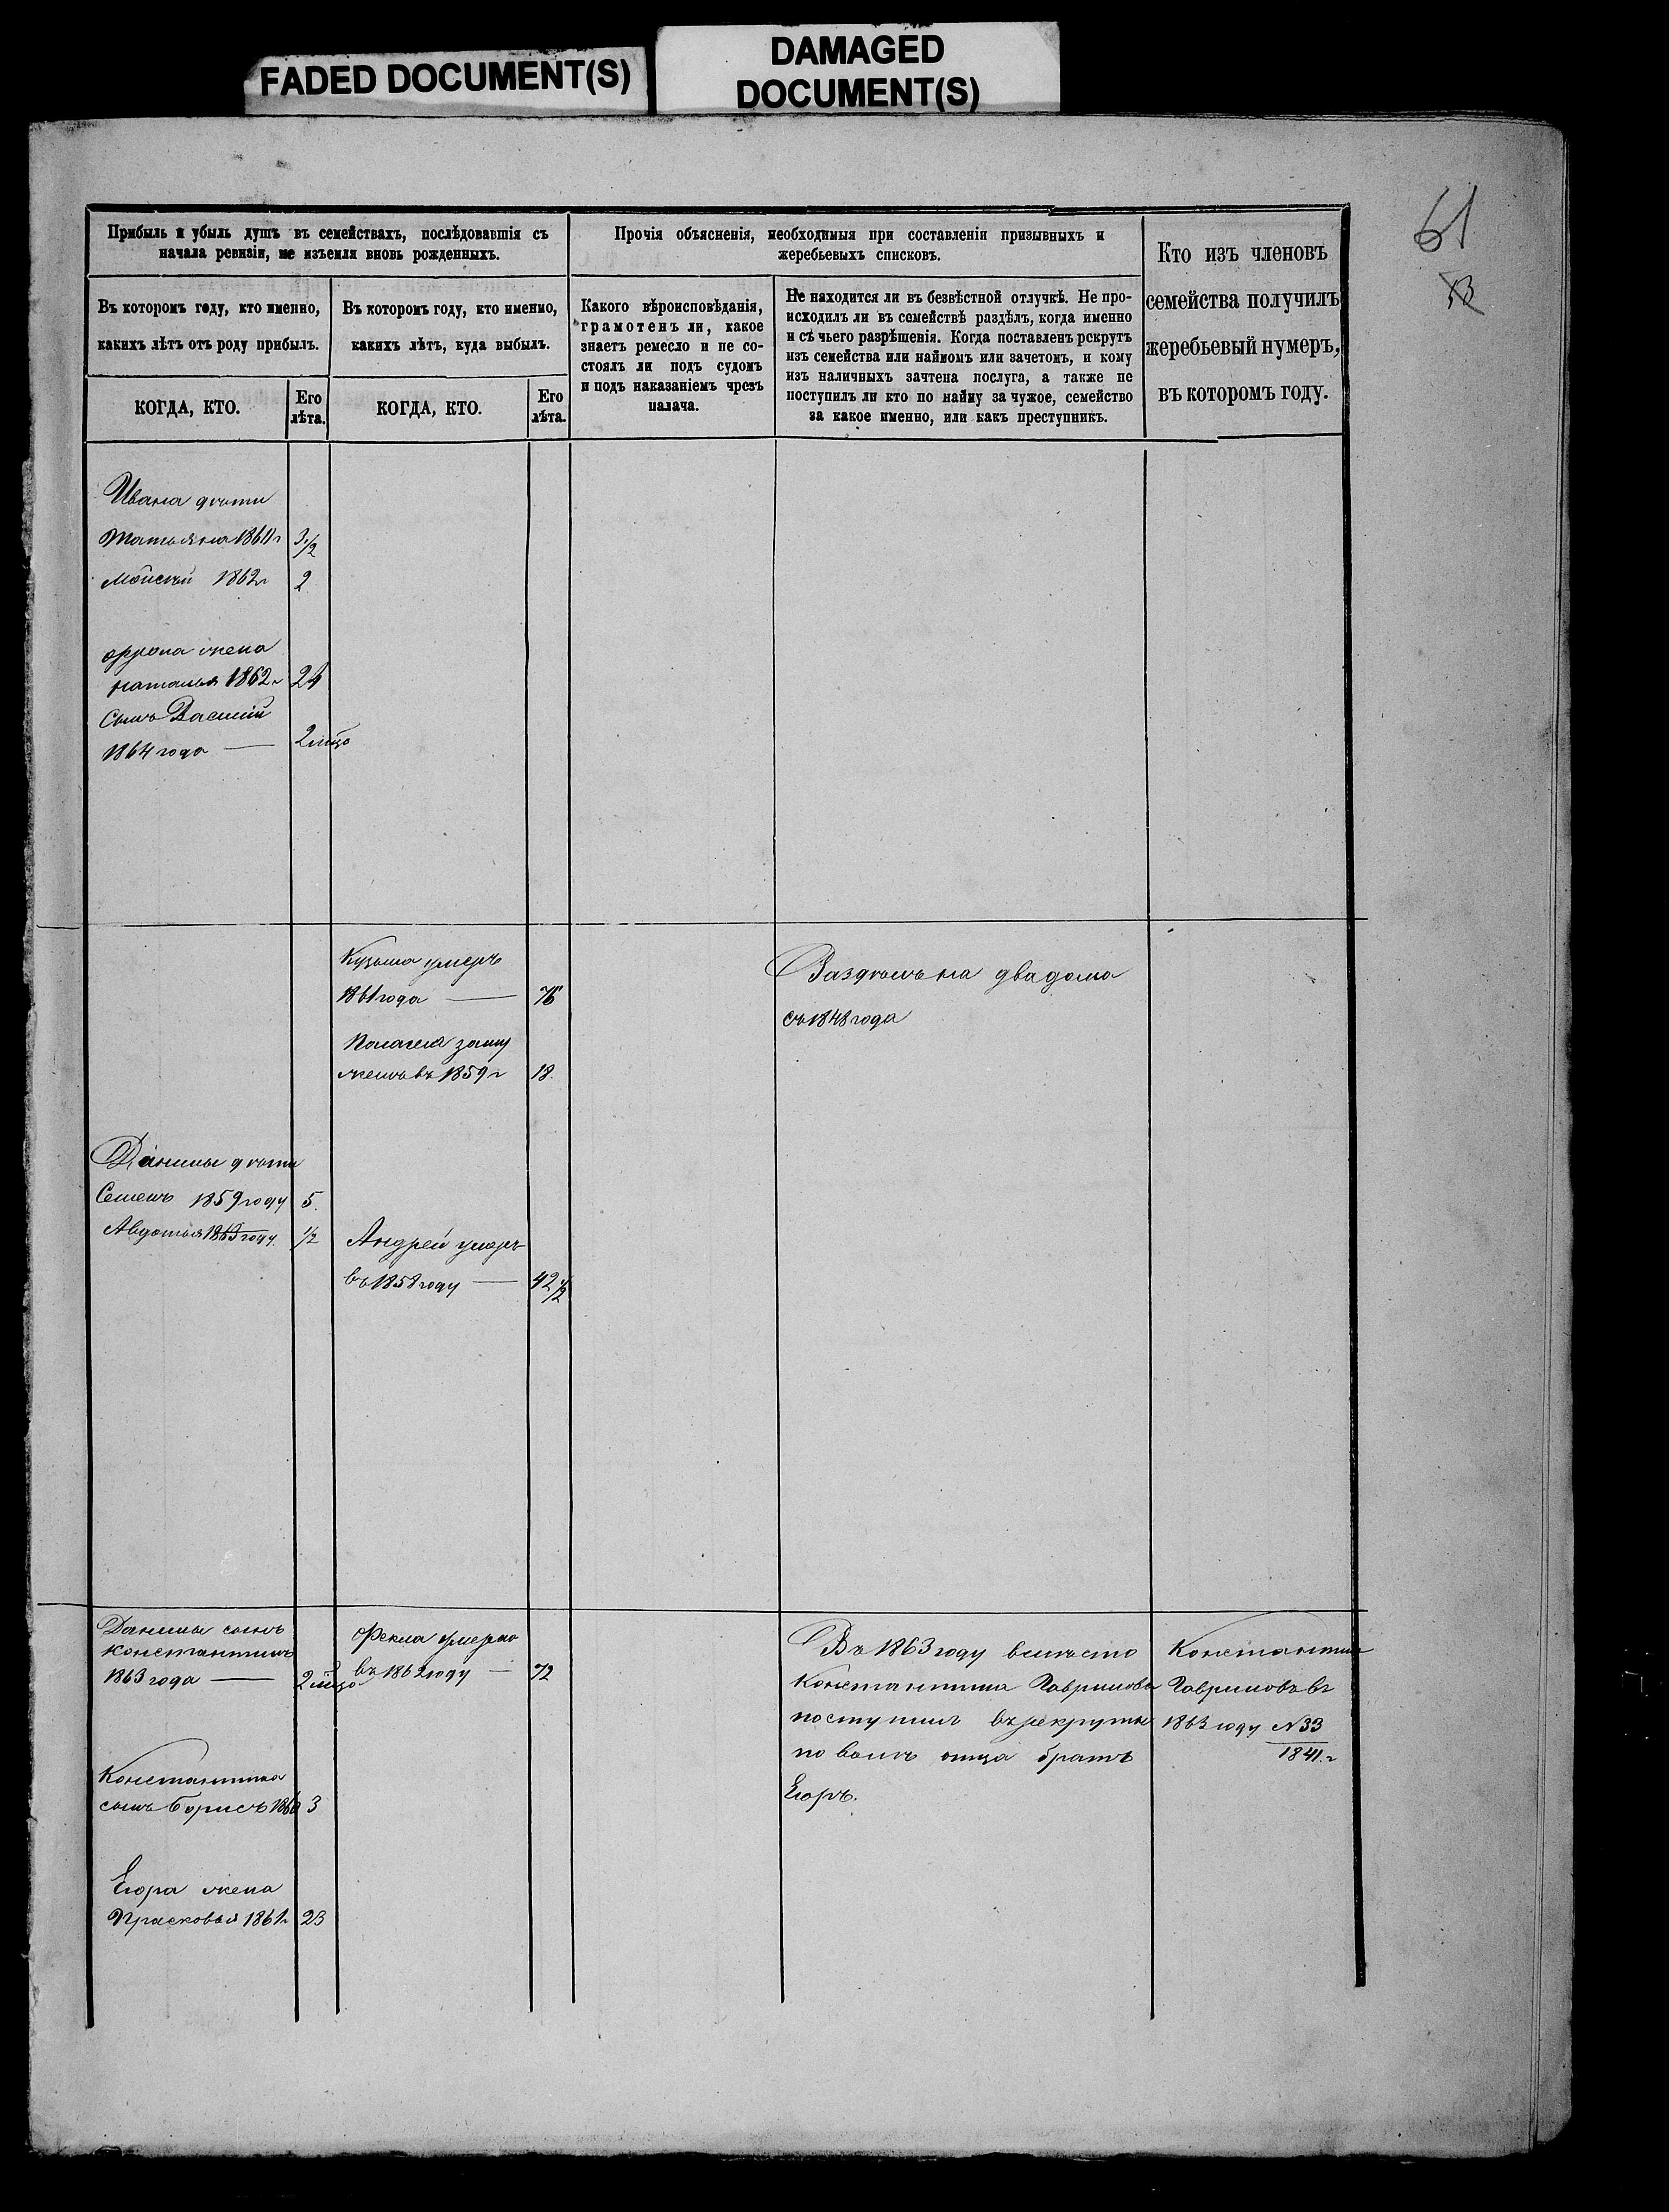 FADED DOCUMENT(S)
DAMAGED
DOCUMENT(S)
61
Прибыль и убыль душъ въ семействахъ, послѣдовавшія съ
начала ревизіи, не изъемля вновь рожденныхъ.
Въ которомъ году, кто именно,
какихъ лѣтъ отъ роду прибылъ.
КОГДА, КТО.
Его
лѣта.
Въ которомъ году, кто именно,
какихъ лѣтъ, куда выбылъ.
КОГДА, КТО.
Его
лѣта.
Прочія объясненія, необходимыя при составленіи призывныхъ и
жеребьевыхъ списковъ.
Какого вѣроисповѣданія,
грамотенъ ли, какое
знаетъ ремесло и не со-
стоялъ ли подъ судомъ
и подъ наказаніемъ чрезъ
палача.
Не находится ли въ безвѣстной отлучкѣ. Не про-
исходилъ ли въ семействѣ раздѣлъ, когда именно
и съ чьего разрѣшенія. Когда поставленъ рекрутъ
изъ семейства или наймомъ или зачетомъ, и кому
изъ наличныхъ зачтена послуга, а также не
поступилъ ли кто по найму за чужое, семейство
за какое именно, или какъ преступникъ.
Кто изъ членовъ
семейства получилъ
жеребьевый нумеръ,
въ которомъ году.
Ивана дѣти
Татьяна 1861 г 3 1/2
Мойсѣй 1862 г 2
жена
Наталья 1862 г 24
Сынъ Василій
1864 года — 2 мѣо
Кузьма умеръ
1861 года — 76
Палагея заму
жемъ въ 1859 г 18.
Раздѣлъ на два дома
съ 1848 года
Данилы дѣти
Семенъ 1859 году 5.
Авдотья 1863 году. 1/2
Андрей умеръ
въ 1858 году — 42 1/2
Данилы сынъ
Константинъ
1863 года — 2 мѣо
Константина
сынъ Борисъ 1860 3
Егора жена
Прасковья 1861 г 23
Фекла умерла
въ 1862 году — 72
Въ 1863 году вмѣсто
Константина Гаврилова
поступилъ въ рекруты
по волѣ отца братъ
Егоръ.
Константинъ
Гавриловъ въ
1863 году N 33
1841. г